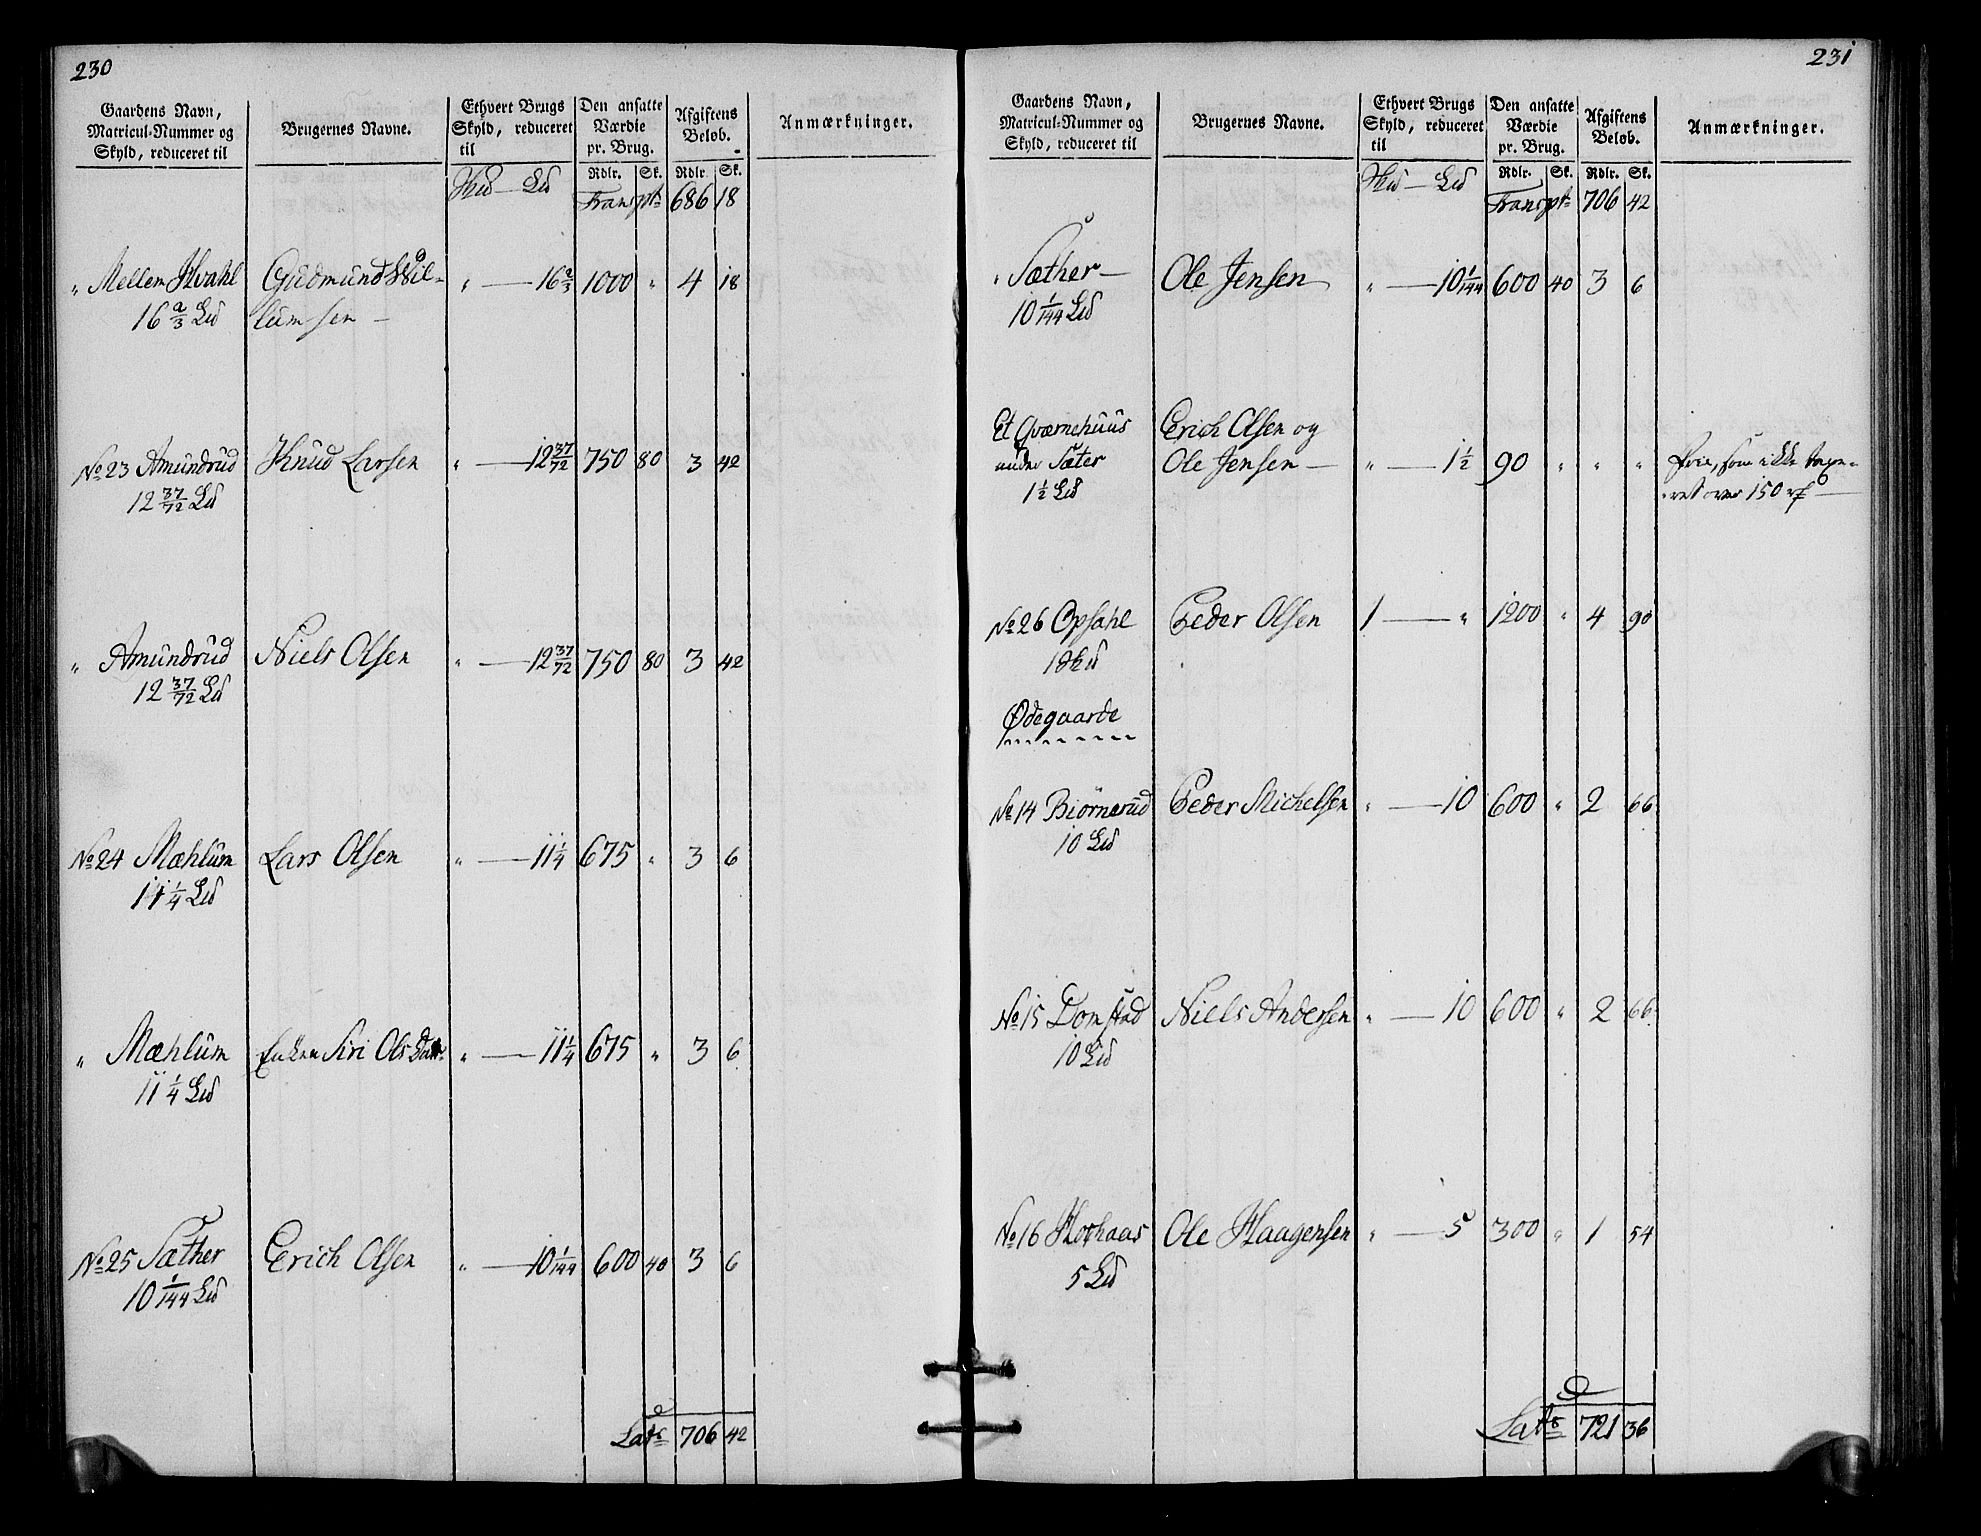 230
Gaardens Navn, Matricul-Nummer og Skyld, reduceret til
Brugernes Navne.
Ethvert Brugs Skyld, reduceret til
Den ansatte Værdie pr. Brug.
Afgiftens Beløb.
Anmærkninger.
Rdlr. Sk. Rdlr. Sk.
Hud — Ld Transpt 686 18
" Mellem Hvahl Gudmund Wil- " — 16 2/3 1000 " 4 18
16 2/3 Ld lumsen —
No 23 Amundrud Knud Larsen " — 12 37/72 750 80 3 42
12 37/72 Ld
" Amundrud Niels Olsen " — 12 37/72 750 80 3 42
12 37/72 Ld
No 24 Mæhlum Lars Olsen " — 11 1/4 675 " 3 6
11 1/4 Ld
" Mæhlum Enken Siri Olsdatr " — 11 1/4 675 " 3 6
11 1/4 Ld
No 25 Sæther Erich Olsen " — 10 1/144 600 40 3 6
10 1/144 Ld
Lats 706 42
231
Gaardens Navn, Matricul-Nummer og Skyld, reduceret til
Brugernes Navne.
Ethvert Brugs Skyld, reduceret til
Den ansatte Værdie pr. Brug.
Afgiftens Beløb.
Anmærkninger.
Rdlr. Sk. Rdlr. Sk.
Hud — Ld Transpt 706 42
" Sæther — Ole Jensen " — 10 1/144 600 40 3 6
10 1/144 Ld
Et Qværnehuus Erich Olsen og
under Sæter Ole Jensen — " — 1 1/2 90 " " " Frie, som ikke taxe-
1 1/2 Ld ret over 150 rd —
No 26 Opsahl Peder Olsen 1 — " 1200 " 4 90
1 Hud
Ødegaarde
No 14 Biörnerud Peder Michelsen " — 10 600 " 2 66
10 Ld
No 15 Domstad Niels Andersen " — 10 600 " 2 66
10 Ld
No 16 Ole Haagensen " — 5 300 " 1 54
5 Ld
Lats 721 36